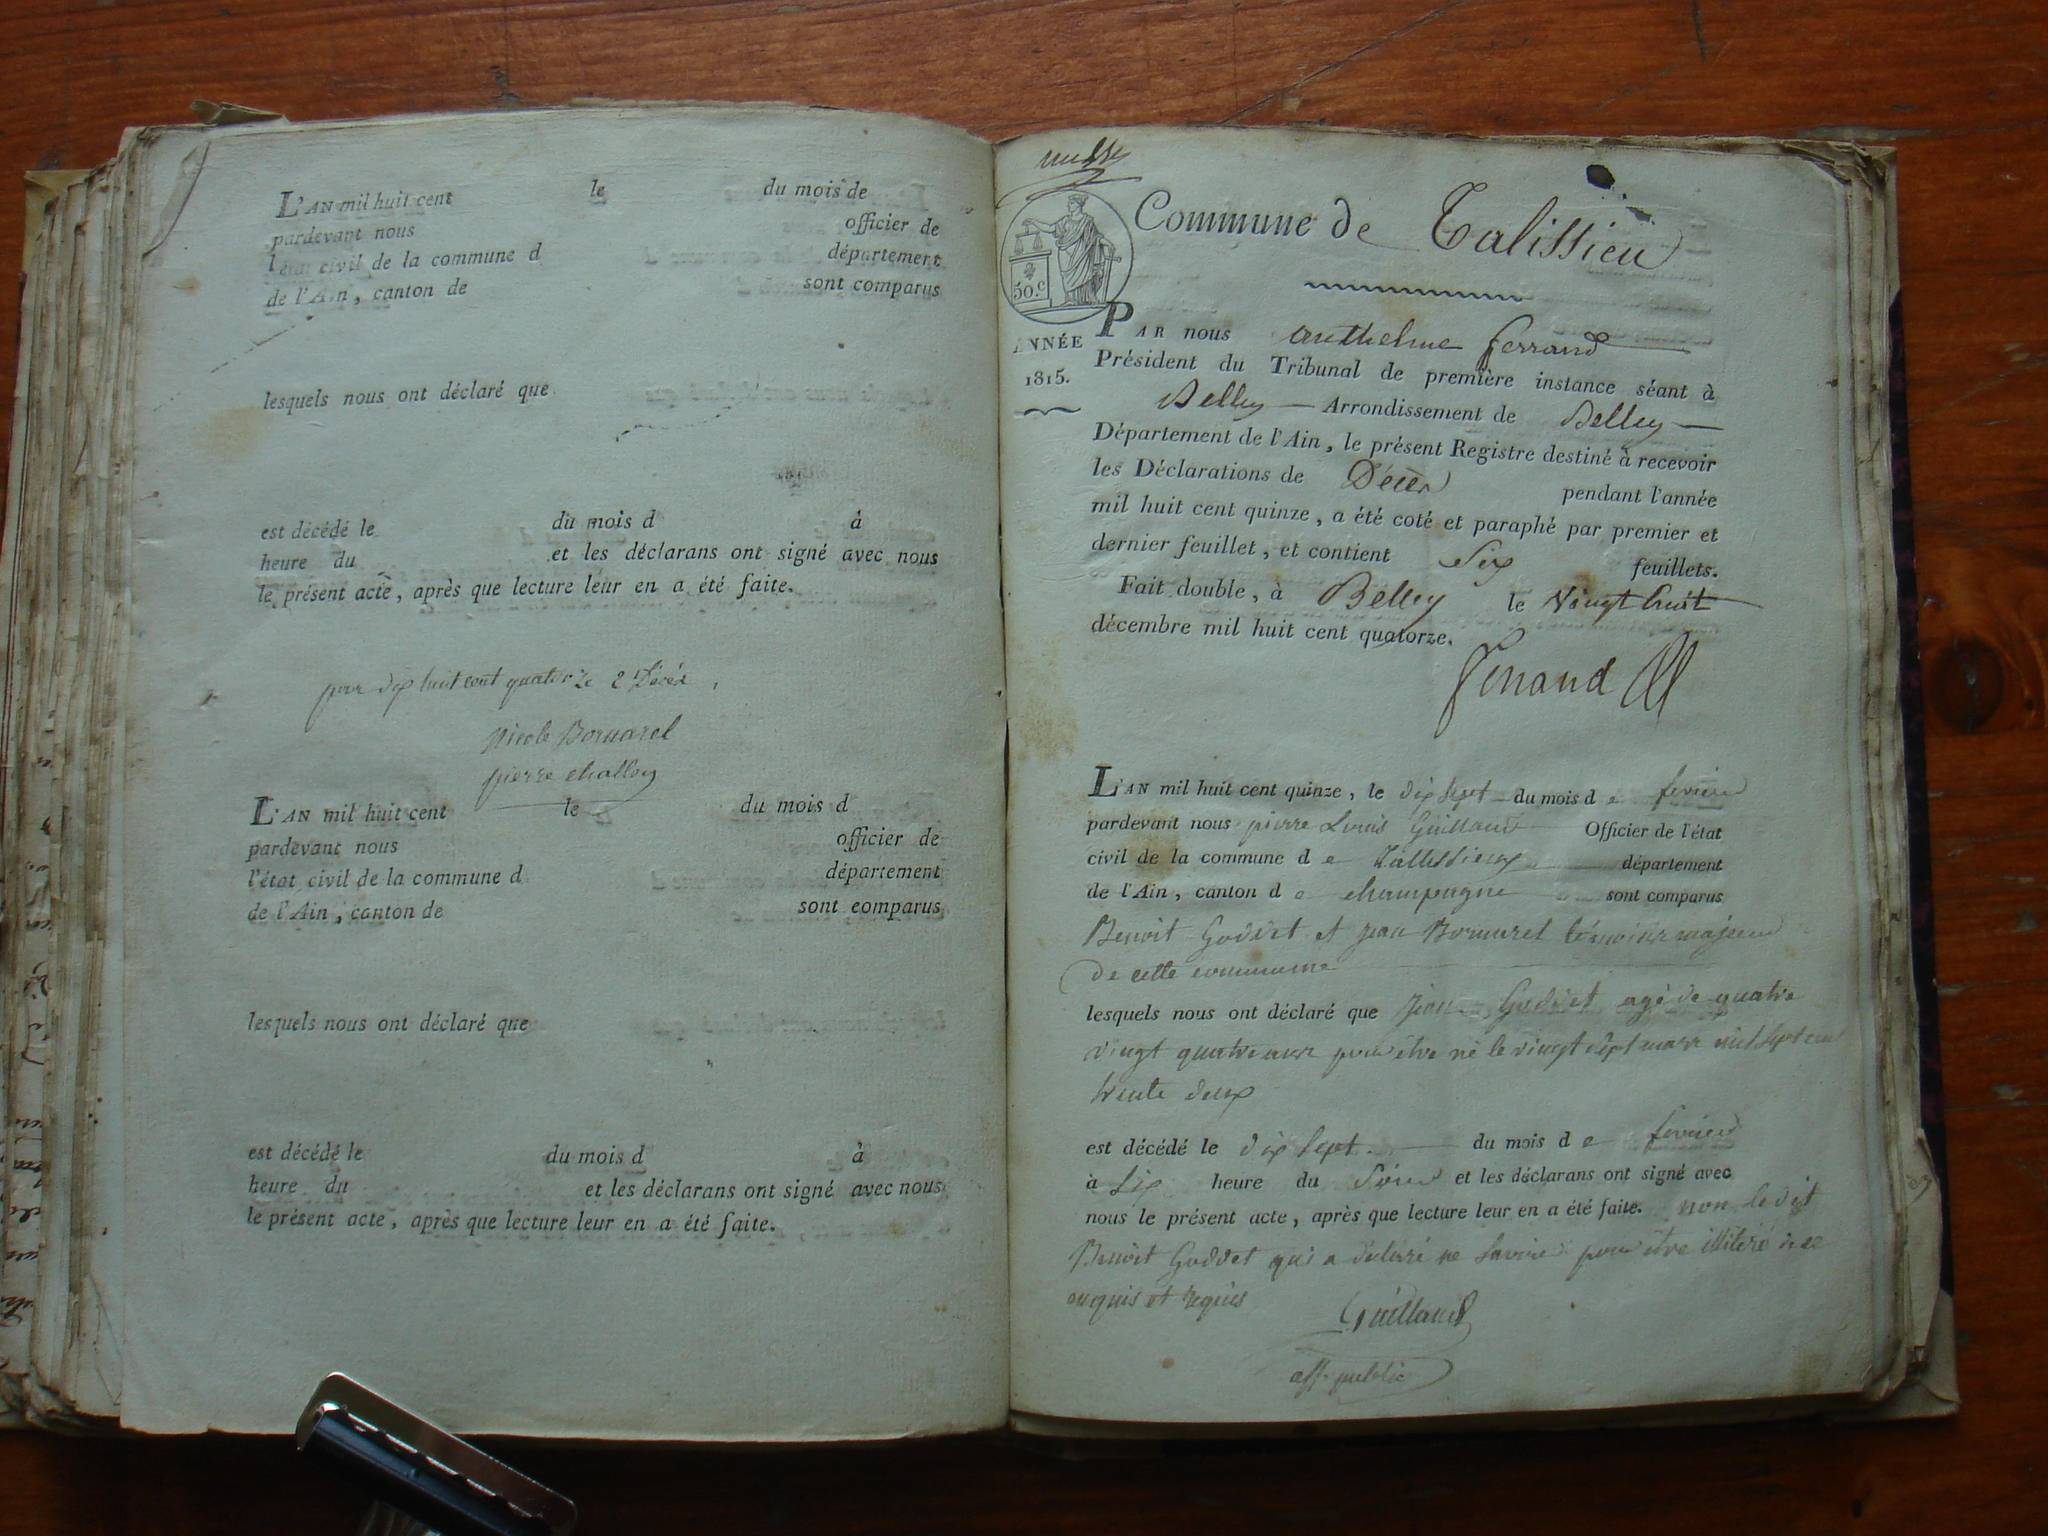 L'AN mil huit cent le du mois de
pardevant nous officier de
l'état civil de la commune d département
de l'Ain, canton de sont comparus
lesquels nous ont déclaré que
est décédé le du mois d à
heure du et les déclarans ont signé avec nous
le présent acte, après que lecture leur en a été faite.
pour dix huit cent quatorze 2 Décès
nicole Bornarel
pierre challoy
L'AN mil huit cent le du mois d
pardevant nous officier de
l'état civil de la commune d département
de l'Ain, canton de sont comparus
lesquels nous ont déclaré que
est décédé le du mois d à
heure du et les déclarans ont signé avec nous
le présent acte, après que lecture leur en a été faite.
Commune de Talissieu
50.c
ANNÉE
1815.
PAR nous anthelme ferrand
Président du Tribunal de première instance séant à
Belley Arrondissement de Belley
Département de l'Ain, le présent Registre destiné à recevoir
les Déclarations de Décès pendant l'année
mil huit cent quinze, a été coté et paraphé par premier et
dernier feuillet, et contient Six feuillets.
Fait double, à Belley le Vingt huit
décembre mil huit cent quatorze.
ferrand
L'AN mil huit cent quinze, le dix sept du mois de fevrier
pardevant nous pierre Louis Guilland Officier de l'état
civil de la commune de Tallissieux département
de l'Ain, canton de champagne sont comparus
Benoit Goddet et jean Bornarel témoins majeur
de cette commune
lesquels nous ont déclaré que jean Goddet agé de quatre
vingt quatre ans pour être né le vingt sept mars mil sept cent
trente deux
est décédé le dix sept du mois de fevrier
à six heure du soir et les déclarans ont signé avec
nous le présent acte, après que lecture leur en a été faite. non le dit
Benoit Goddet qui a déclaré ne savoir pour être illitéré de ce
enquis et requis
Guilland
off. public